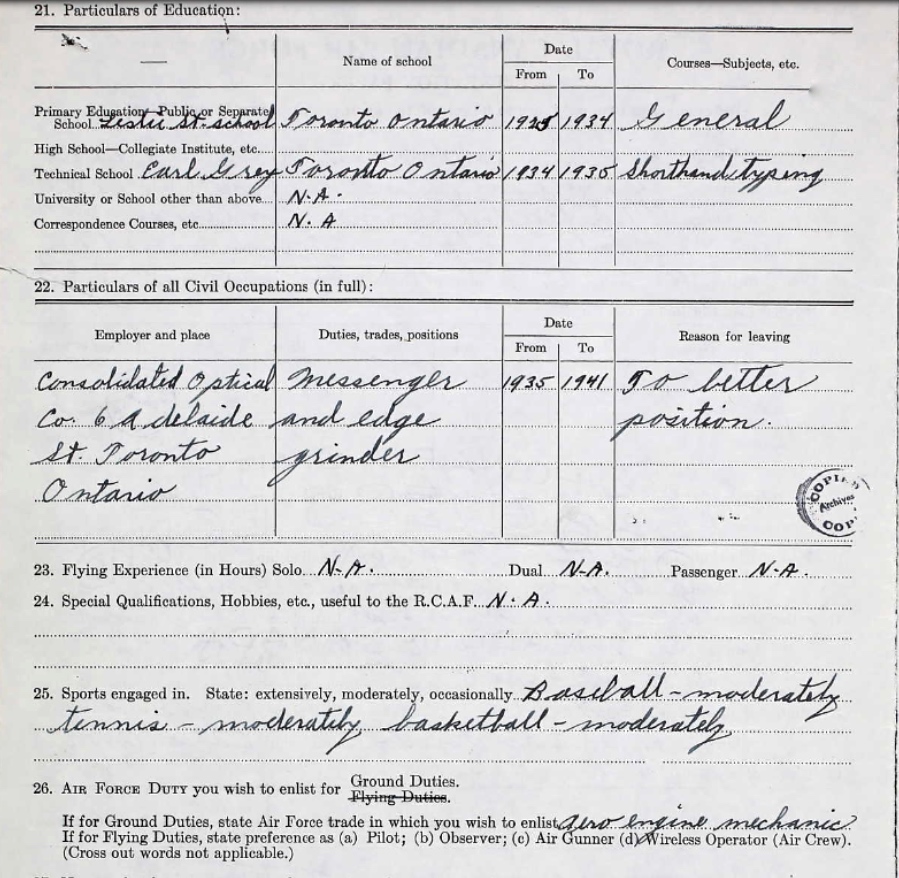 21. Particulars of Education:
Name of school
Date
From To
Courses—Subjects, etc.
Primary Education—Public or Separate
School Leslie St. school Toronto Ontario 1925 1934 General
High School—Collegiate Institute, etc.
Technical School Earl Grey Toronto Ontario 1934 1935 Shorthand, typing
University or School other than above N.A.
Correspondence Courses, etc. N.A
22. Particulars of all Civil Occupations (in full):
Employer and place
Duties, trades, positions
Date
From To
Reason for leaving
Consolidated Optical Messenger 1935 1941 To better
Co. 6 Adelaide and edge position.
St. Toronto grinder
Ontario
COPIED
Archives
COPI
23. Flying Experience (in Hours) Solo N.A. Dual N.A. Passenger N.A.
24. Special Qualifications, Hobbies, etc., useful to the R.C.A.F. N.A.
25. Sports engaged in. State: extensively, moderately, occasionally Baseball - moderately
tennis - moderately, basketball - moderately
26. AIR FORCE DUTY you wish to enlist for Ground Duties.
Flying Duties.
If for Ground Duties, state Air Force trade in which you wish to enlist aero engine mechanic
If for Flying Duties, state preference as (a) Pilot; (b) Observer; (c) Air Gunner (d) Wireless Operator (Air Crew).
(Cross out words not applicable.)